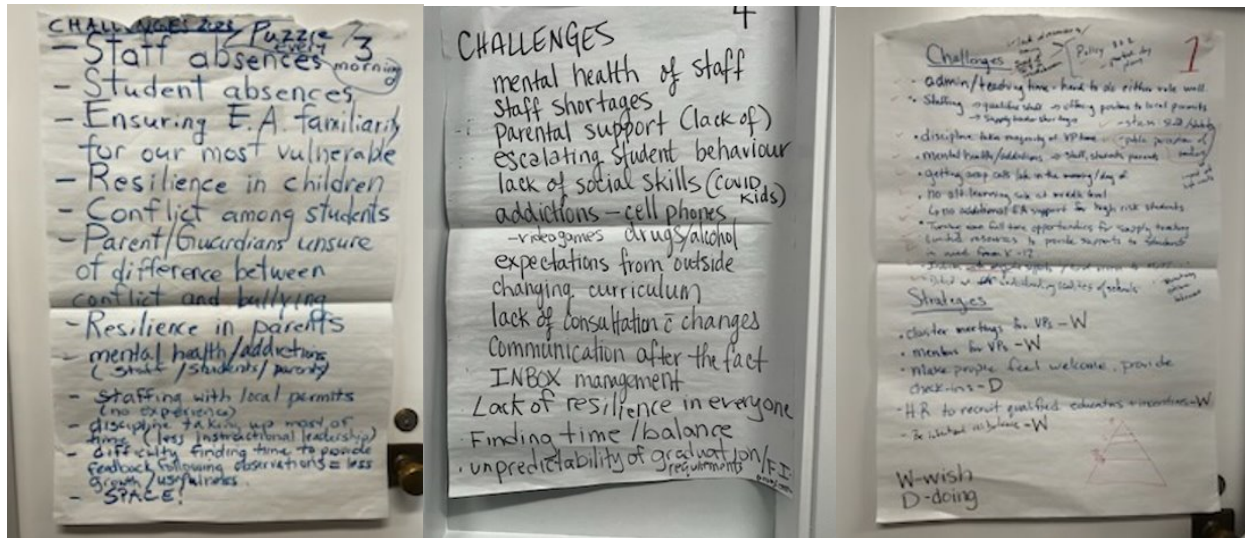 CHALLENGES
Puzzle
every
morning
3
- Staff absences
- Student absences
- Ensuring E.A. familiarity
for our most vulnerable
- Resilience in children
- Conflict among students
- Parent/Guardians unsure
of difference between
conflict and bullying
- Resilience in parents
- mental health/addictions
(staff/students/parents)
- staffing with local permits
(no experience)
- discipline taking up most of
time (less instructional leadership)
- difficulty finding time to provide
feedback following observations = less
growth/usefulness
- SPACE!
4
CHALLENGES
mental health of staff
staff shortages
parental support (lack of)
escalating student behaviour
lack of social skills (COVID
kids)
addictions - cell phones
- videogames drugs/alcohol
expectations from outside
changing curriculum
lack of consultation c̄ changes
Communication after the fact
INBOX management
Lack of resilience in everyone
Finding time/balance
unpredictability of graduation/FI
requirements
1
Challenges
Policy
admin/teaching time - hard to do either role well
Staffing → qualified staff → offering positions to local permits
→ Supply teacher shortages
discipline take majority of VP time
public perception of
mental health/addictions → staff, students, parents
getting calls late in the morning/day of
no alt. learning site at middle level
no additional EA support for high risk students
Turning down full time opportunities for supply teaching
Limited resources to provide supports to students
in need from K-12
Strategies
• cluster meetings for VPs - W
• mentors for VPs - W
• make people feel welcome, provide
check-ins - D
- HR to recruit qualified educators + incentives - W
W-wish
D-doing